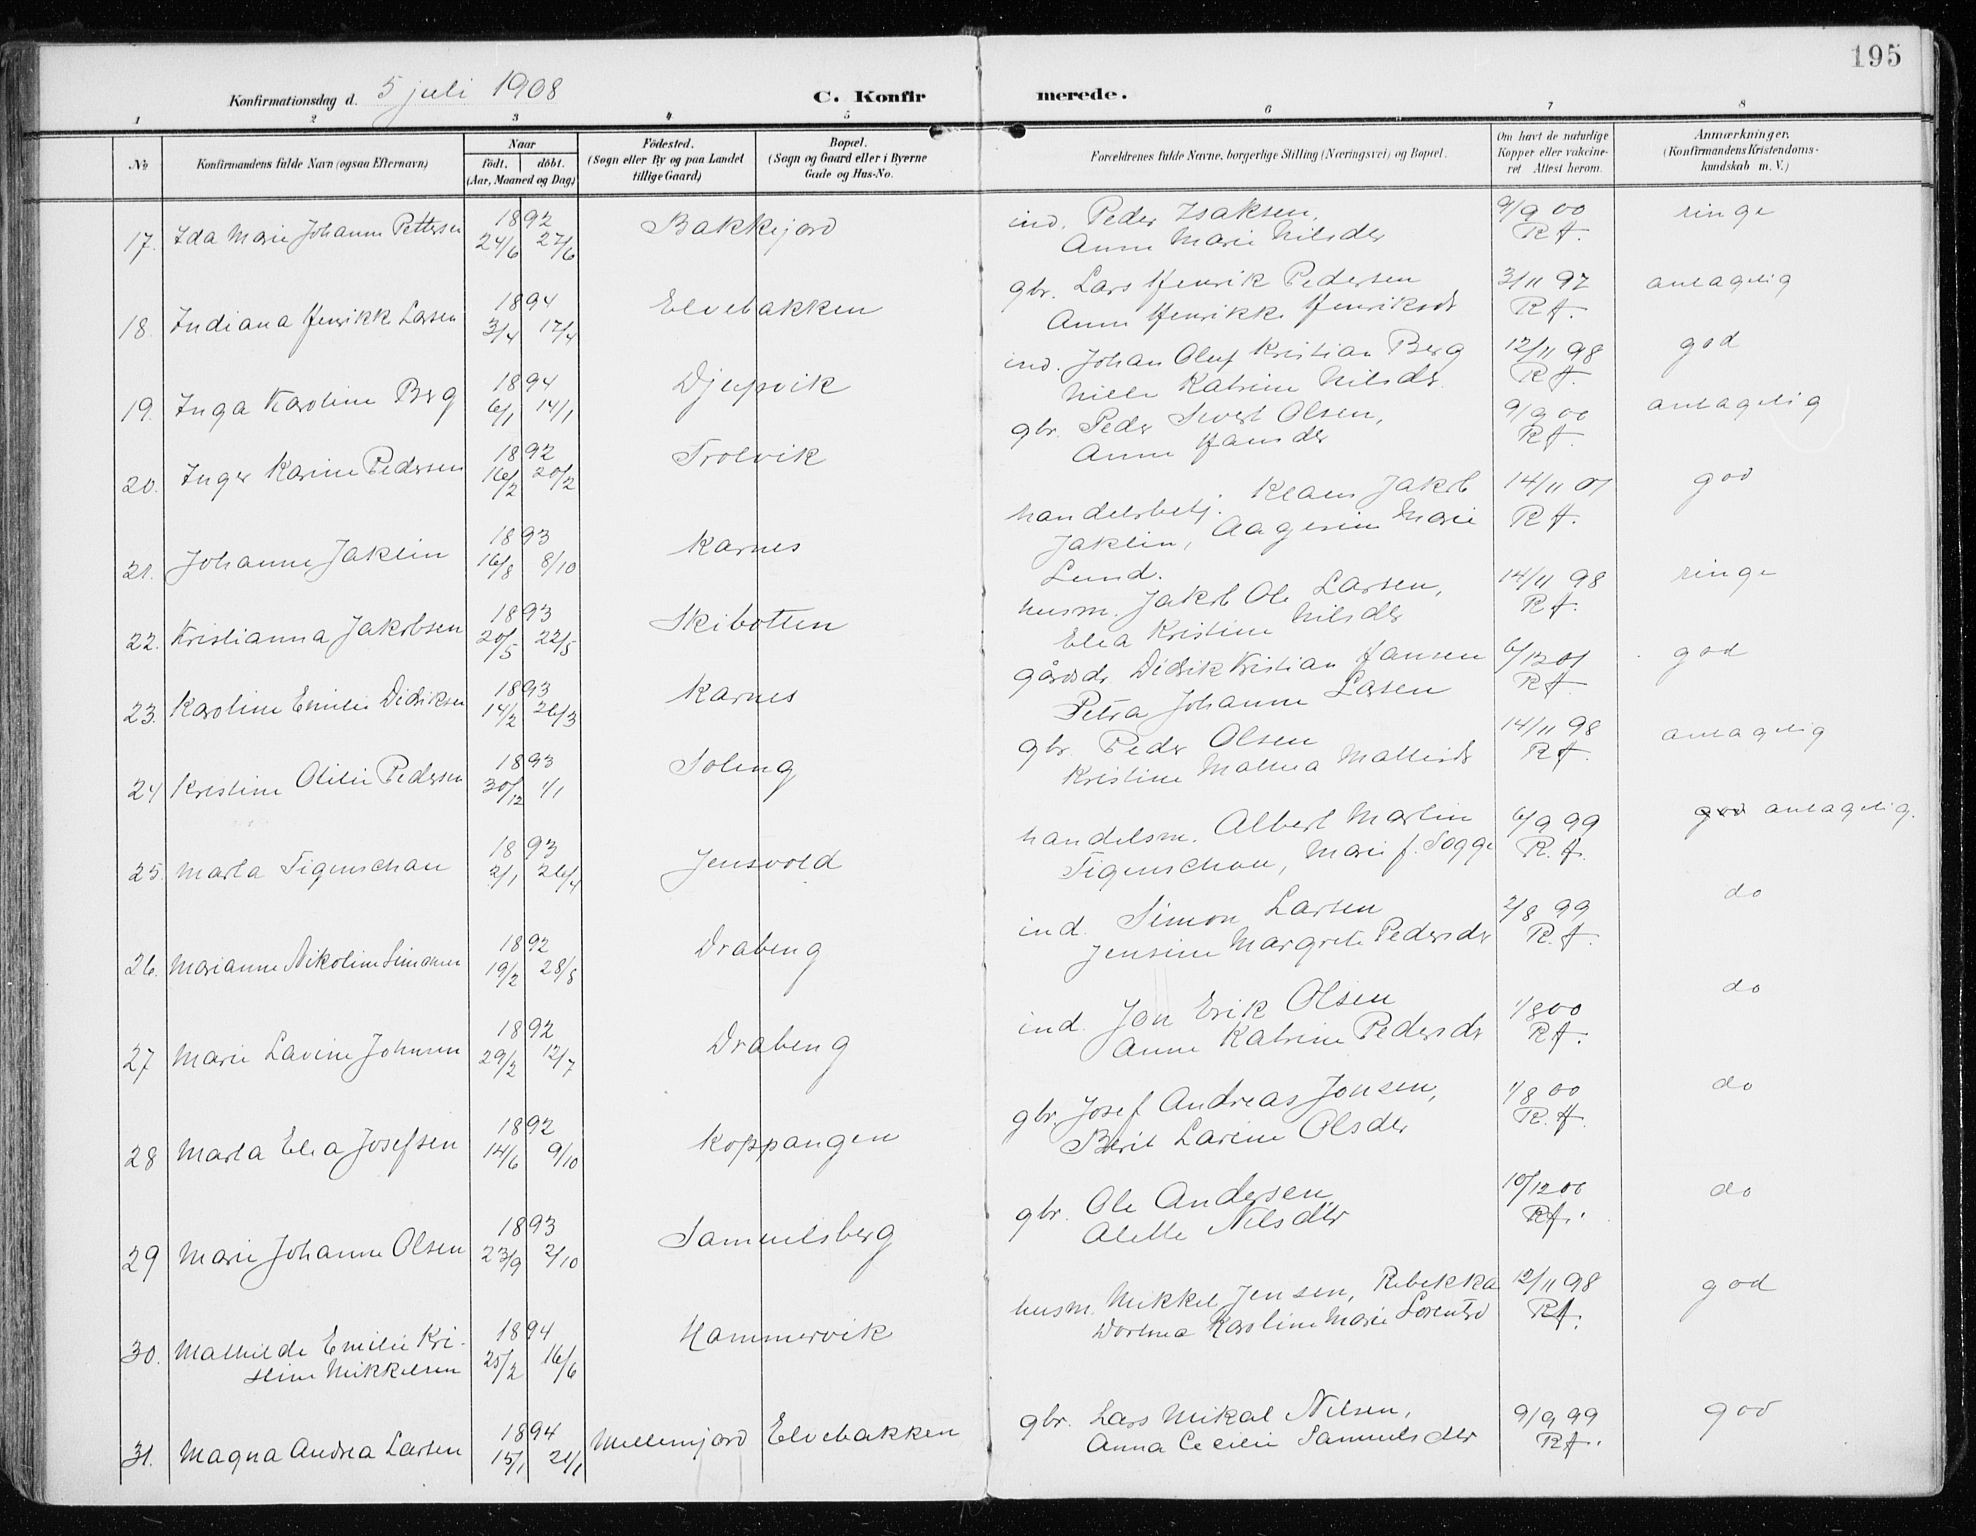 195
Konfirmationsdag d. 5 juli 1908 C. Konfirmerede.
1 2 3 4 5 6 7 8
No. Konfirmandens fulde Navn (ogsaa Efternavn) Naar født. døbt. (Aar, Maaned og Dag) Fødested. (Sogn eller By og paa Landet tillige Gaard) Bopæl. (Sogn og Gaard eller i Byerne Gade og Hus-No. Forældrenes fulde Navne, borgerlige Stilling (Næringsvei) og Bopæl. Om havt de naturlige Kopper eller vakcineret. Attest herom. Anmærkninger. (Konfirmandens Kristendomskundskab m. V.)
17. Ida Marie Johanne Pettersen 1892 24/6 27/6 Bakkejord ind. Peder Isaksen, 9/9 00 ringe
Anne Marie Nilsdr RA.
18. Indiana Henrikke Larsen 1894 3/4 17/4 Elvebakken gbr. Lars Henrik Pedersen 3/11 97 antagelig
Anne Henrikke Henriksdr RA.
19. Inga Karoline Berg 1894 6/1 14/1 Djupvik ind. Johan Oluf Kristian Berg 12/11 98 god
Katrine Nilsdr. RA.
20. Inger Karine Pedersen 1892 16/2 20/2 Trolvik gbr. Peder Sivert Olsen, 9/9 00 antagelig
Anne Hansdr RA.
21. Johanne Jaklin 1893 16/8 8/10 Karnes handelsbetj. Klaus Jakob 14/11 01 god
Jaklin, Aagesen Marie RA.
Lund.
22. Kristianna Jakobsen 1893 20/5 22/5 Skibotten husm. Jakob Ole Larsen, 14/11 98 ringe
Elea Kristine Nilsdr RA.
23. Karoline Emilie Didriksen 1893 14/2 26/3 Karnes gårdsdr. Didrik Kristian Hansen 6/12 01 god
Petra Johanne Lasen RA.
24 Kristine Otilie Pedersen 1893 30/12 1/1 Soleng gbr. Peder Olsen 14/11 98 antagelig
Kristine Mathea Mathisdr RA.
25. Marta Figenschau 1893 2/1 26/4 Jensvold handelsm. Albert Martin 6/9 99 god antagelig.
Figenschou, Marie f. Sogge R.A.
26. Marianne Nikoline Simonsen 1892 19/2 28/8 Drabeng ind. Simon Larsen 2/8 99 do
Jensine Margrete Pedersdr R.A.
27 Marie Lavine Johnsen 1892 29/2 12/7 Drabeng ind. Jon Erik Olsen 1/8 00 do
Anne Katrine Pedersdr RA.
28 Marta Elea Josefsen 1892 14/6 9/10 Koppangen gbr. Josef Andreas Jonsen, 1/8 00 do
Berit Larine Olsdr R.A.
29 Marie Johanne Olsen 1893 23/9 2/10 Samuelsberg gbr. Ole Andersen 10/12 00 do
Alette Nilsdtr RA.
30. Mathilde Emilie Kri- 1894 25/2 16/6 Hammervik husm. Mikkel Jensen, Rebekka 12/11 98 god
stine Mikkelsen Dorthea Karoline Marie Lorentsd RA.
31. Magna Andrea Larsen 1894 15/1 21/1 Mellemjord Elvebakken gbr. Lars Mikal Nilsen, 9/9 99 god
Anna Cecilie Samuelsdtr RA.